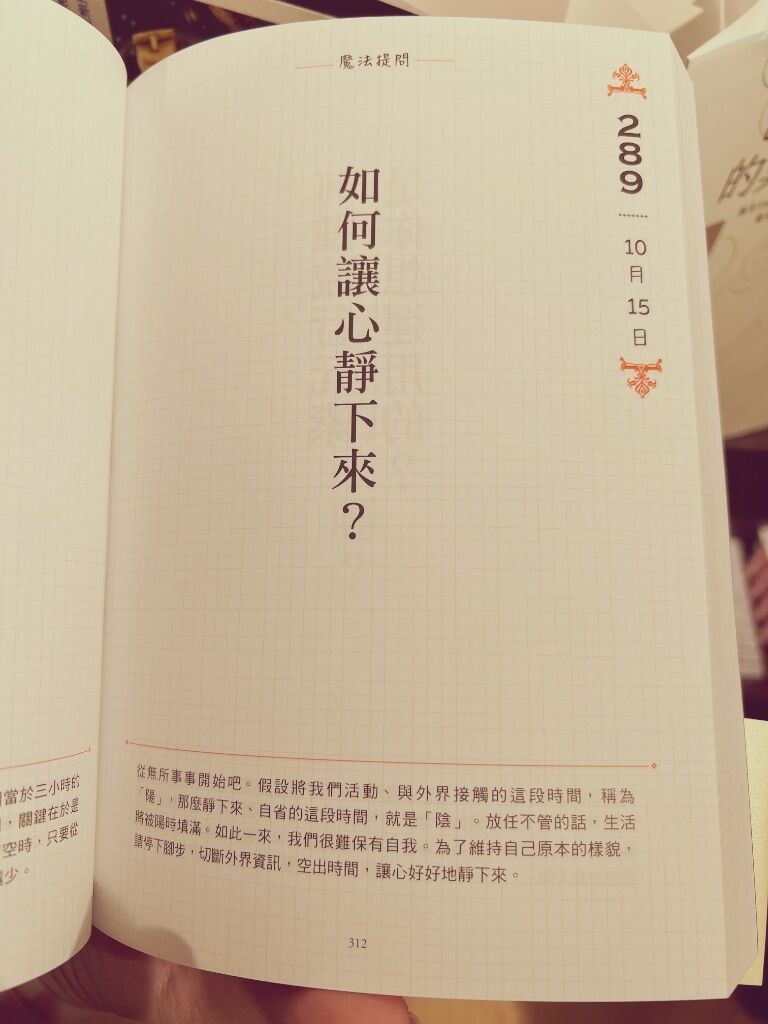 魔法提問
289
10
月
15
日
如何讓心靜下來？
從無所事事開始吧。假設將我們活動、與外界接觸的這段時間，稱為
「陽」，那麼靜下來、自省的這段時間，就是「陰」。放任不管的話，生活
將被陽時填滿。如此一來，我們很難保有自我。為了維持自己原本的樣貌，
請停下腳步，切斷外界資訊，空出時間，讓心好好地靜下來。
312
當於三小時的
，關鍵在於是
空時，只要從
少。
的